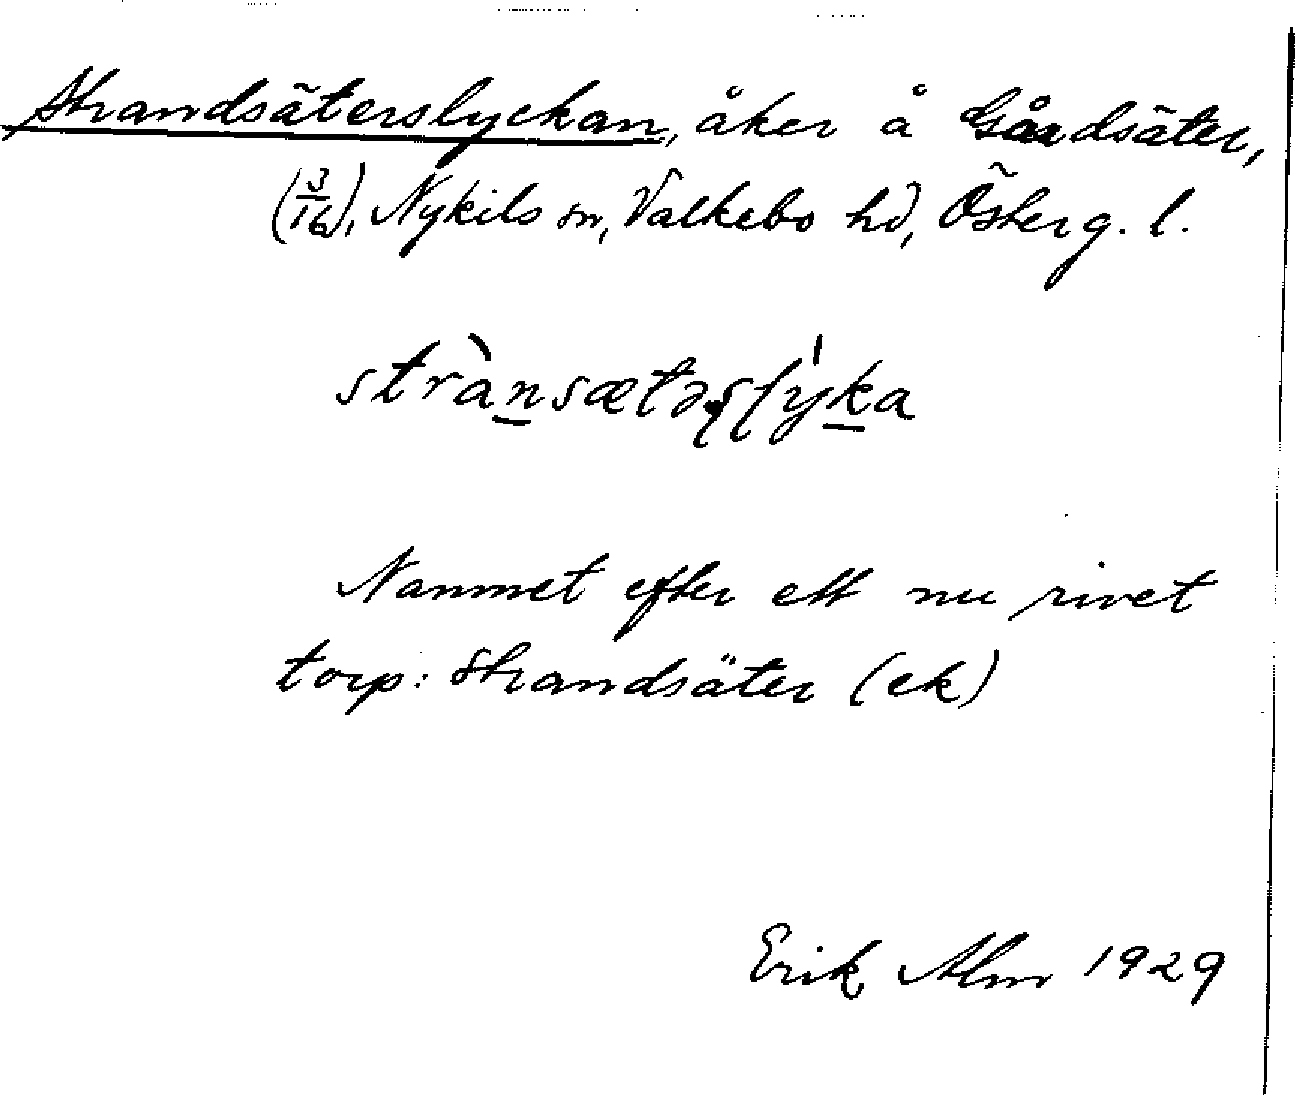 Strandsäterslyckan, åker å Gårdsäter,
(3/16), Nykils sn, Valkebo hd, Österg. l.
strànsætəṣļýka
Namnet efter ett nu rivet
torp: Strandsäter (ek)
Erik Alm 1929